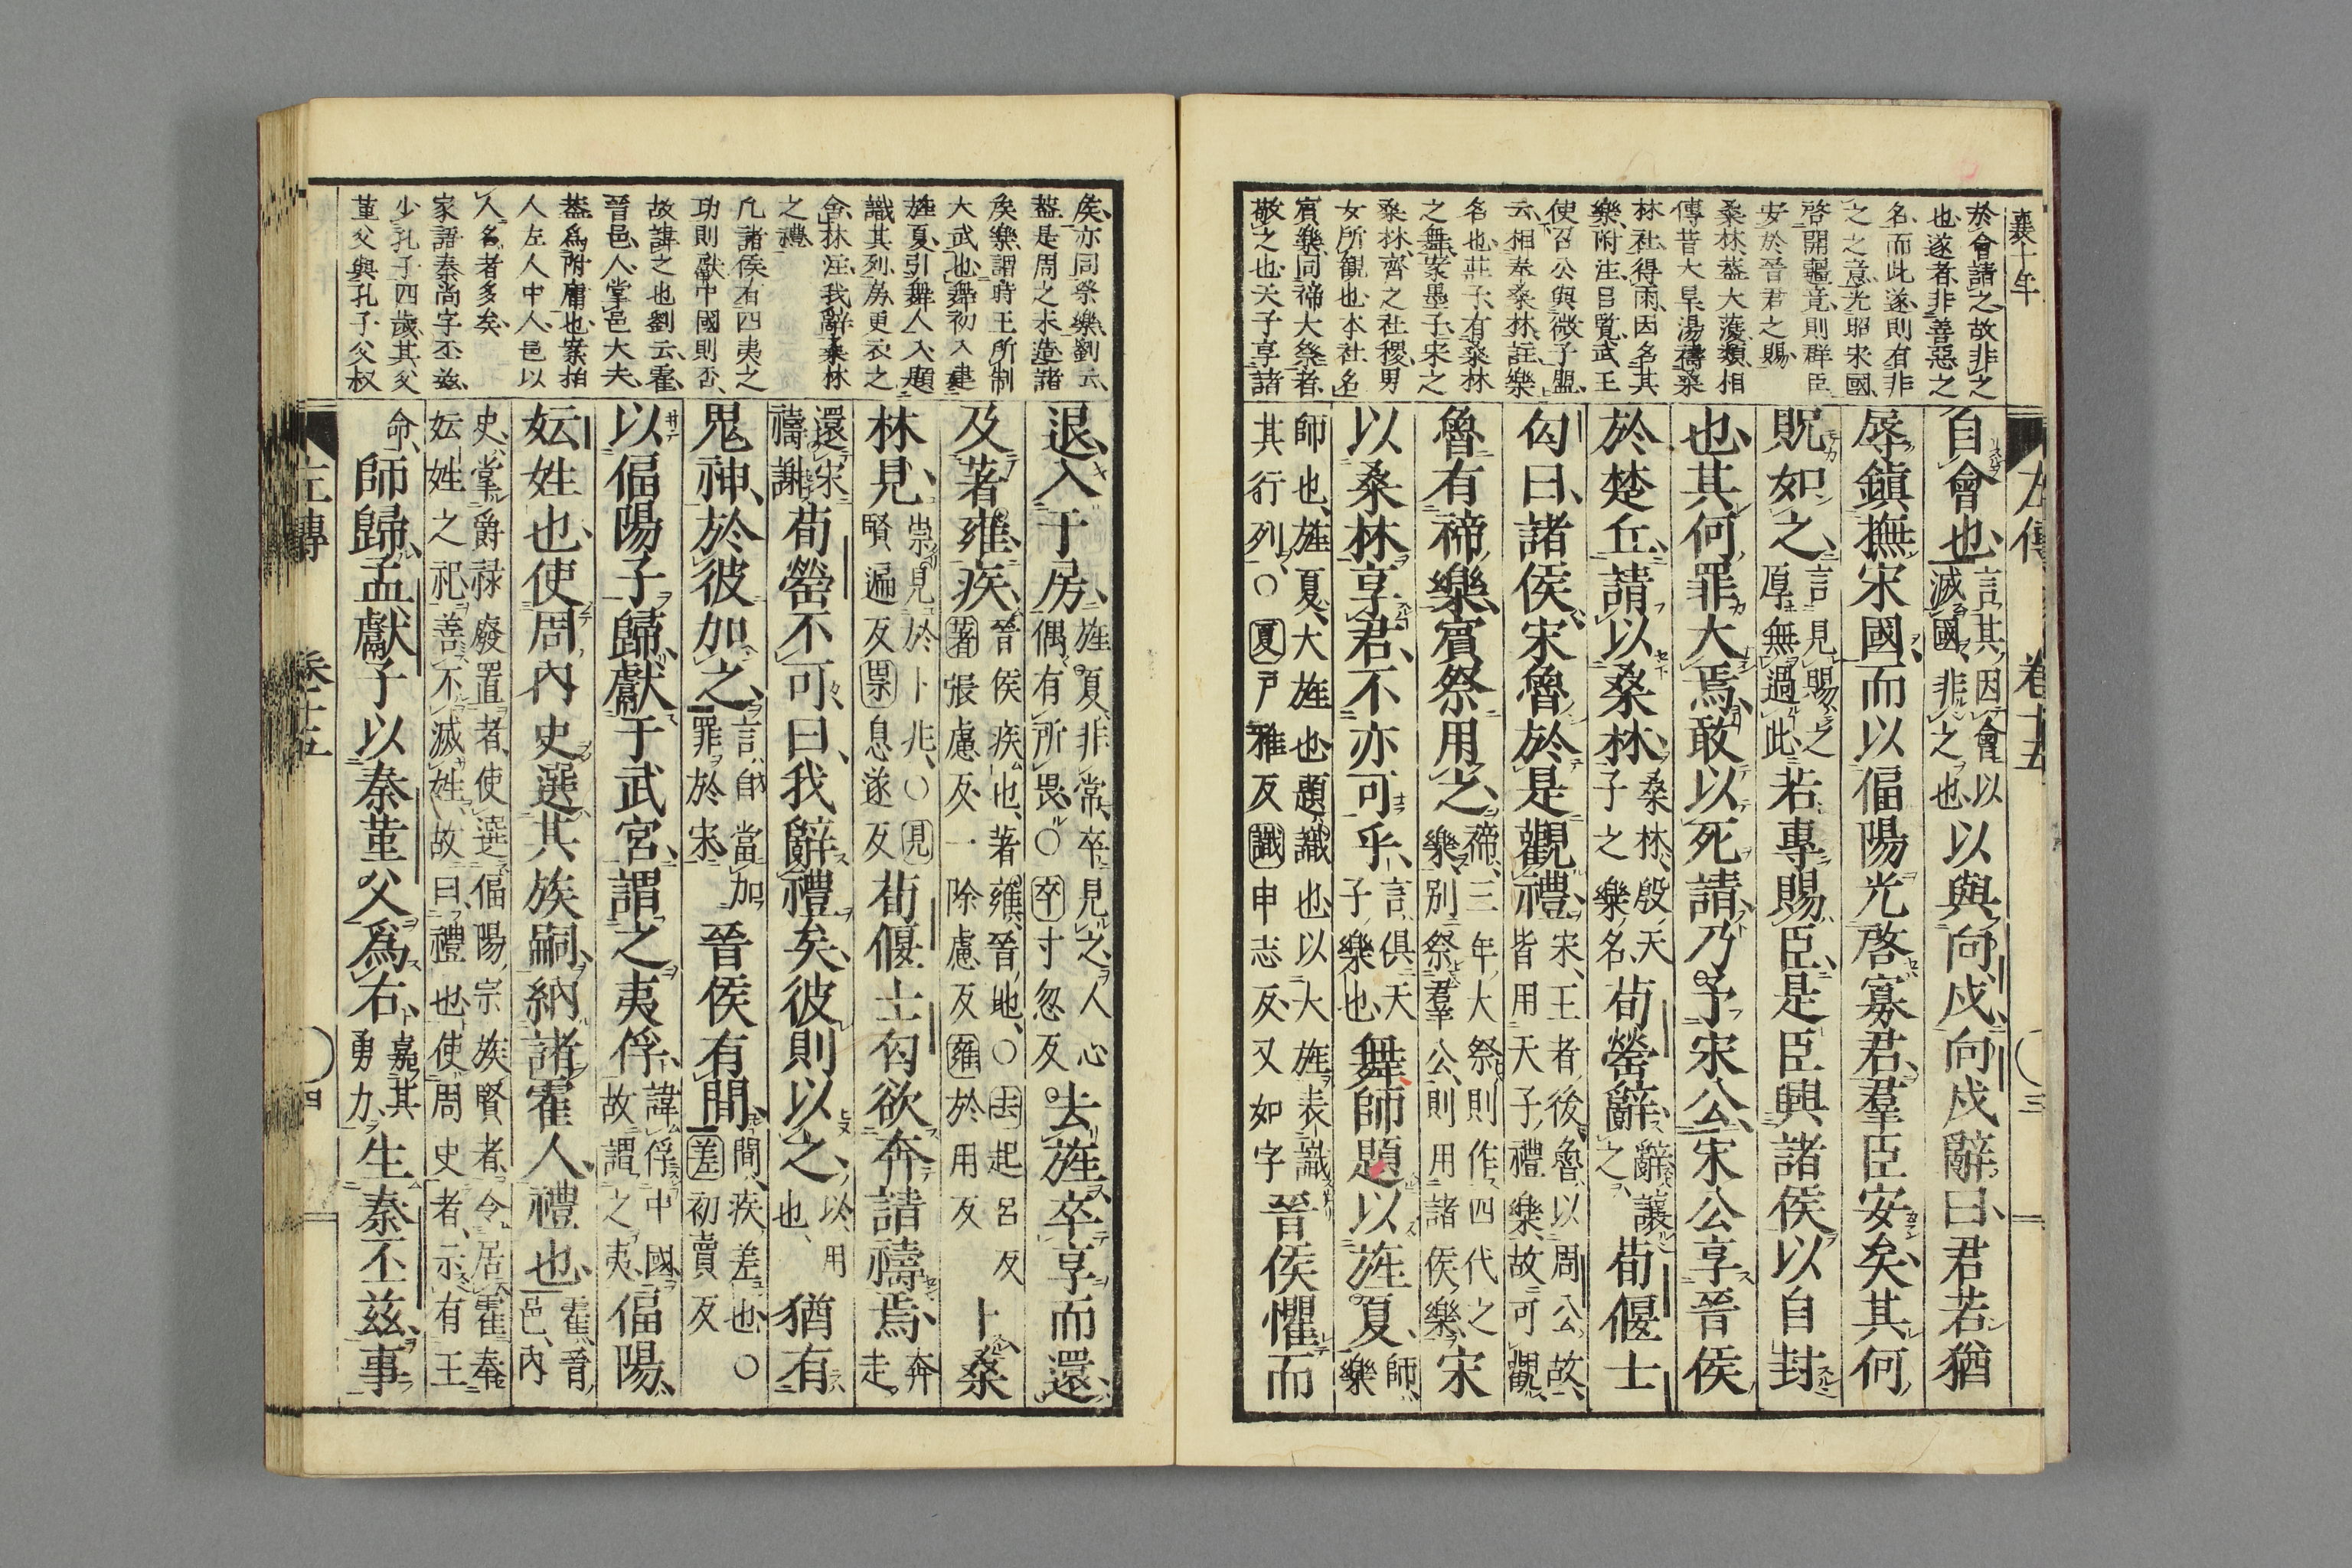 襄十年
於會諸之故非之
也遂者非善惡之
名而此遂則有非
之之意光昭宋國
啓開疆竟則群臣
安於晉君之賜
桑林蓋大蒦類相
傳昔大旱湯禱桑
林社得雨因名其
樂附注呂覽武王
使召公與微子盟
云相奉桑林註樂
名也莊子有桑林
之舞案墨子宋之
桑林齊之社稷男
女所観也本社名
賓樂同禘大祭者
敬之也天子享諸
左傳 卷十五 三
自會也言其因會以滅國非之也以與向戌向戌辭曰君若猶
辱鎮撫宋國而以偪陽光啓寡君羣臣安矣其何
貺如之言見賜之厚無過此若專賜臣是臣興諸侯以自封
也其何罪大焉敢以死請乃予宋公宋公享晉侯
於楚丘請以桑林桑林殷天子之樂名荀罃辭辭讓之荀偃士
匄曰諸侯宋魯於是觀禮宋王者後魯以周公故皆用天子禮樂故可觀
魯有禘樂賓祭用之禘三年大祭則作四代之樂別祭羣公則用諸侯樂宋
以桑林享君不亦可乎言俱天子樂也舞師題以旌夏師樂
師也旌夏大旌也題識也以大旌表識其行列○夏戸雅反識申志反又如字晉侯懼而
矦亦同祭樂劉云
蓋是周之末造諸
矦樂謂時王所制
大武也舞初入建
旌夏引舞人入題
識其列房更衣之
舍林注我辭桑林
之禮
凡諸侯有四夷之
功則獻中國則否
故諱之也劉云霍
晉邑人掌邑大夫
蓋爲附庸也案拍
人左人中人邑以
人名者多矣
家語秦尚字丕兹
少孔子四歲其父
菫父與孔子父叔
退入于房旌夏非常卒見之人心偶有所畏○卒寸忽反去旌卒享而還
及著雍疾晉侯疾也著雍晉地○去起呂反著張慮反一除慮反雍於用反卜桑
林見祟見於卜兆○見賢遍反祟息遂反荀偃士匄欲奔請禱焉奔走
還宋禱謝荀罃不可曰我辭禮矣彼則以之以用也猶有
鬼神於彼加之言自當加罪於宋晉侯有間間疾差也○差初賣反
以偪陽子歸獻于武宮謂之夷俘諱俘中國故謂之夷偪陽
妘姓也使周內史選其族嗣納諸霍人禮也霍晉邑內
史掌爵禄廢置者使選偪陽宗族賢者令居霍奉妘姓之祀善不滅姓故曰禮也使周史者示有王
命師歸孟獻子以秦菫父爲右嘉其勇力生秦丕兹事
左傳 卷十五 四